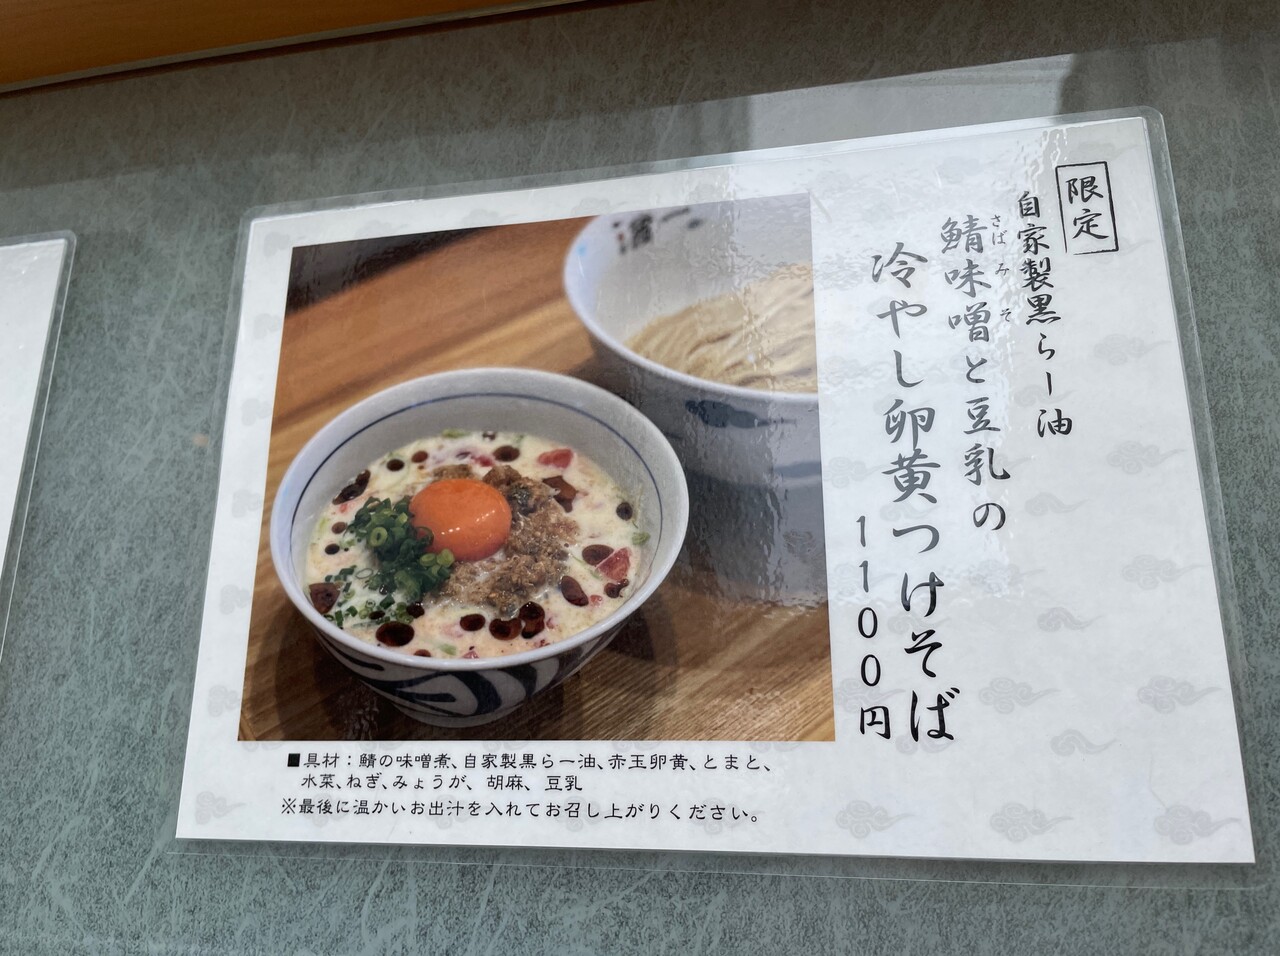 限定
自家製黒らー油
さば みそ
鯖味噌と豆乳の
冷やし卵黄つけそば
1100円
■具材：鯖の味噌煮、自家製黒らー油、赤玉卵黄、とまと、
水菜、ねぎ、みょうが、胡麻、豆乳
※最後に温かいお出汁を入れてお召し上がりください。